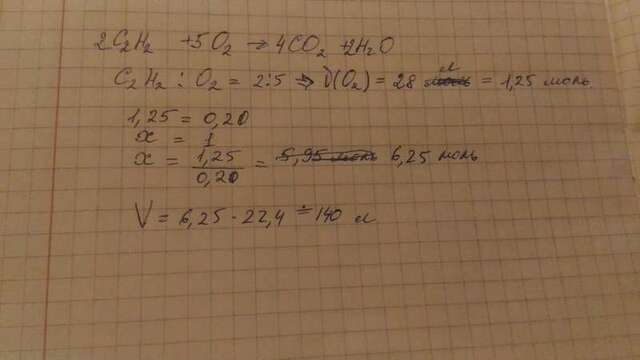 2C₂H₂ + 5O₂ → 4CO₂ + 2H₂O
C₂H₂ : O₂ = 2:5 ⇒ ν(O₂) = 28 л = 1,25 моль
1,25 = 0,20
x = 1
x = 1,25/0,20 = 5,95 моль 6,25 моль
V = 6,25 · 22,4 = 140 л